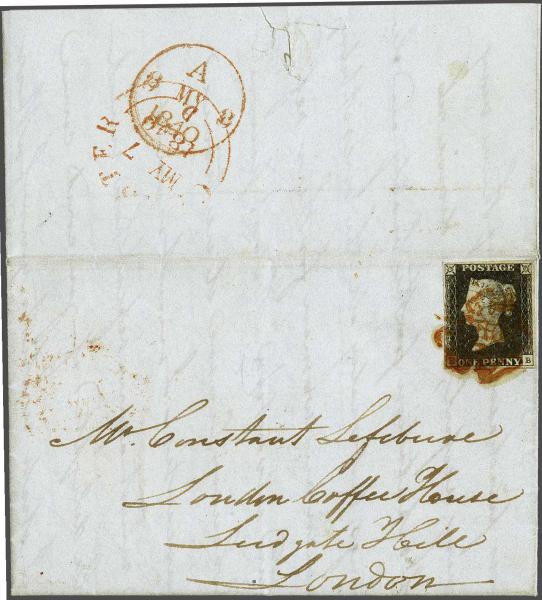 A
8 MY 8
1840
TER
MY 7
POSTAGE
ONE PENNY B
Mr. Constant Lefebure
London Coffee House
Ludgate Hill
London